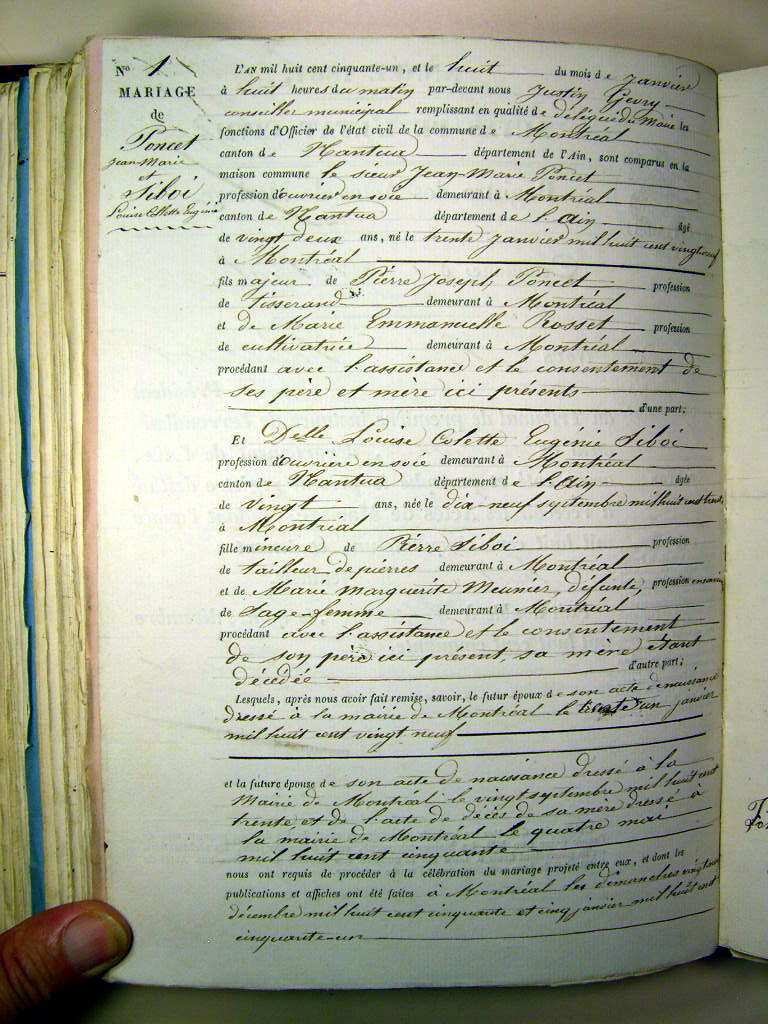 No 1
MARIAGE
de
Poncet
Jean Marie
et
Siboi
Louise Collette Eugénie
L'AN mil huit cent cinquante-un, et le huit du mois de janvier
à huit heures du matin par-devant nous Justin Gevry
conseiller municipal remplissant en qualité de délégué du Maire les
fonctions d'Officier de l'état civil de la commune de Montréal
canton de Nantua département de l'Ain, sont comparus en la
maison commune le sieur Jean-Marie Poncet
profession d'ouvrier en soie demeurant à Montréal
canton de Nantua département de l'Ain âgé
de vingt deux ans, né le trente janvier mil huit cent vingt neuf
à Montréal
fils majeur de Pierre Joseph Poncet profession
de tisserand demeurant à Montréal
et de Marie Emmanuelle Rosset profession
de cultivatrice demeurant à Montréal
procédant avec l'assistance et le consentement de
ses père et mère ici présents
d'une part;
Et Delle Louise Colette Eugénie Siboi
profession d'ouvrière en soie demeurant à Montréal
canton de Nantua département de l'Ain âgée
de vingt ans, née le dix-neuf septembre mil huit cent trente
à Montréal
fille mineure de Pierre Siboi profession
de tailleur de pierres demeurant à Montréal
et de Marie Marguerite Meunier, défunte, profession
de Sage-femme demeurant à Montréal
procédant avec l'assistance et le consentement
de son père ici présent, sa mère étant
décédée d'autre part;
Lesquels, après nous avoir fait remise, savoir, le futur époux de son acte de naissance
dressé à la mairie de Montréal le trente un janvier
mil huit cent vingt neuf
et la future épouse de son acte de naissance dressé à la
Mairie de Montréal le vingt septembre mil huit cent
trente, et de l'acte de décès de sa mère dressé à
la mairie de Montréal le quatre mai
mil huit cent cinquante
nous ont requis de procéder à la célébration du mariage projeté entre eux, et dont les
publications et affiches ont été faites à Montréal les dimanches vingt neuf
décembre mil huit cent cinquante et cinq janvier mil huit cent
cinquante-un